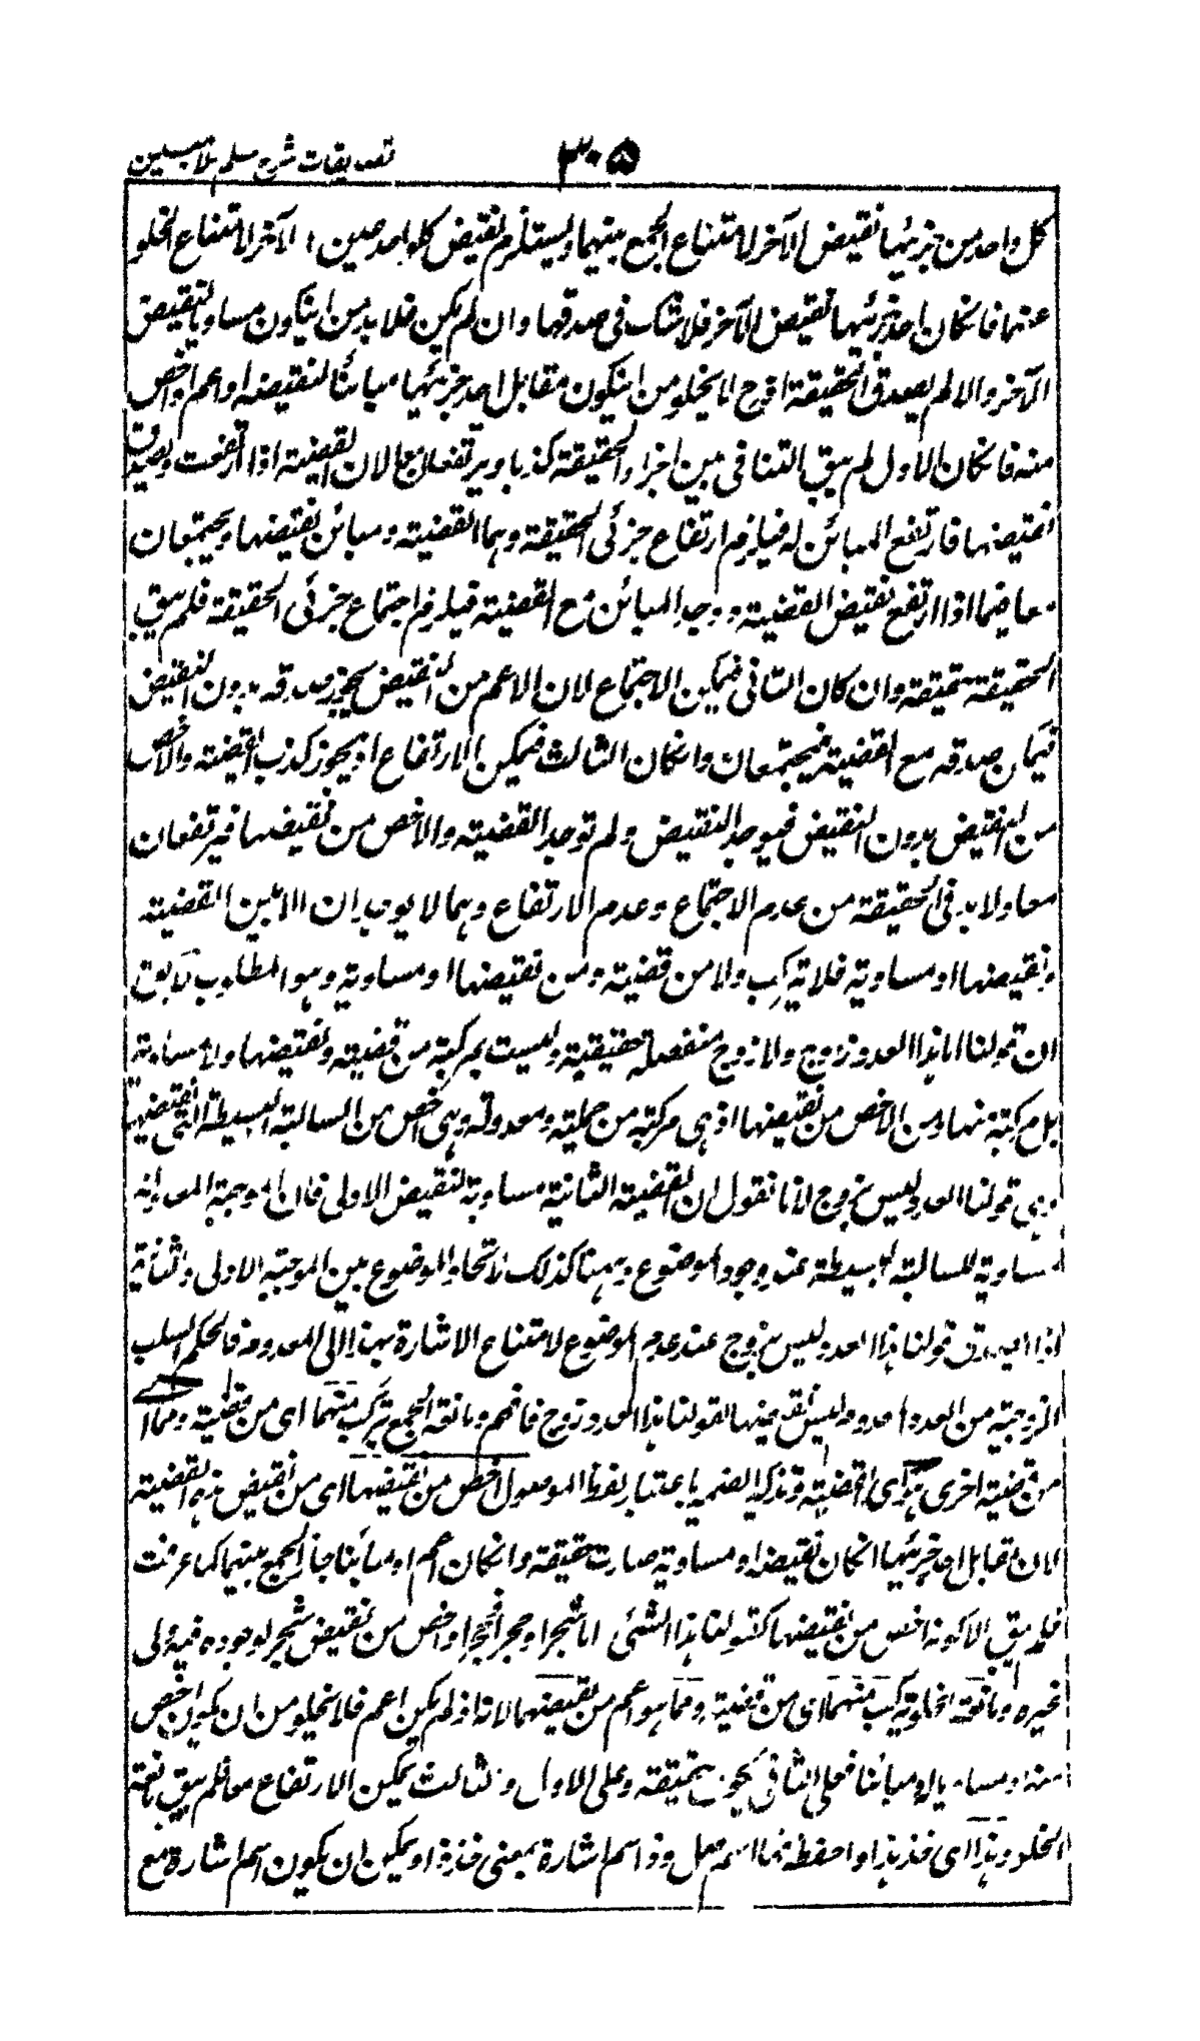 تصدیقات شرح سلم ملا مبین
۳۰۵
كل واحد من جزئيها نقيض الآخر لامتناع الجمع بينهما ويستلزم نقيض كل واحد عين الآخر لامتناع الخلو
عنهما فان كان احد جزئيها نقيض الآخر فلا شك فى صدقها وان لم يكن فلا بد من ان يكون مساويا لنقيض
الآخر والا لم يصدق الحقيقة اذ ح لا يخلو من ان يكون مقابل احد جزئيها مبائنا لنقيضه او اعم او اخص
منه فان كان الاول لم يبق التنافى بين اجزاء الحقيقة كذبا ويرتفعان معا لان القضية اذا ارتفعت وصدق
نقيضها فارتفع المبائن له فيلزم ارتفاع جزئى الحقيقة وهما القضية ومبائن نقيضها ويجتمعان
معا فيما اذا ارتفع نقيض القضية ووجد المبائن مع القضية فيلزم اجتماع جزئى الحقيقة فلم يبق
الحقيقة حقيقة وان كان الثانى فيمكن الاجتماع لان الاعم من النقيض يجوز صدقه بدون النقيض
فيمكن صدقه مع القضية فيجتمعان وان كان الثالث فيمكن الارتفاع اذ يجوز كذب القضية والاخص
من النقيض بدون النقيض فيوجد النقيض ولم توجد القضية والاخص من نقيضها فيرتفعان
معا ولا بد فى الحقيقة من عدم الاجتماع وعدم الارتفاع وهما لا يوجدان الا بين القضية
ونقيضها او مساويه فلا تتركب الا من قضية ومن نقيضها او مساويه وهو المطلوب لا يقال
ان قولنا اما هذا العدد زوج والا زوج منفصلة حقيقية وليست بمركبة من قضية ونقيضها ولا مساويه
بل مركبة منها ومن الاخص من نقيضها اذ هى مركبة من حملية ومعدولة وهى اخص من السالبة البسيطة التى نقيضها
وهى قولنا العدد ليس بزوج لانا نقول ان القضية الثانية مساوية لنقيض الاولى فان الموجبة المعدولة
مساوية للسالبة البسيطة عند وجود الموضوع وههنا كذلك لاتحاد الموضوع بين الموجبة الاولى والثانية
اذ لا يصدق قولنا هذا العدد ليس بزوج عند عدم الموضوع لامتناع الاشارة بهذا الى المعدوم فالحكم بسلب
الزوجية من العدد المعدوم ليس نقيضها لقولنا هذا العدد زوج فافهم ومانعة الجمع تركب منهما اى من قضية ومما اى
من قضية اخرى هو اى القضية وتذكير الضمير باعتبار لفظ الموصول اخص من نقيضها اى من نقيض هذه القضية
لان مقابل احد جزئيها ان كان نقيضه او مساويه صارت حقيقة وان كان اعم او مبائنا جاز الجمع بينهما كما عرفت
فلم يبق الا كونه اخص من نقيضها كقولنا هذا الشئ اما شجر او حجر فالحجر اخص من نقيض شجر لوجوده فيه وفى
غيره ومانعة الخلو تركب منهما اى من قضية ومما هو اعم من نقيضها لانه اذ لم يكن اعم فلا يخلو من ان يكون اخص
منه او مساويا او مبائنا فعلى الثانى يكون حقيقة وعلى الاول والثالث يمكن الارتفاع معا فلم يبق مانعة
الخلو وهذا اى خذ هذا او احفظه فها اسم فعل وذا اسم اشارة بمعنى خذ ذا او يمكن ان يكون اسم اشارة مع